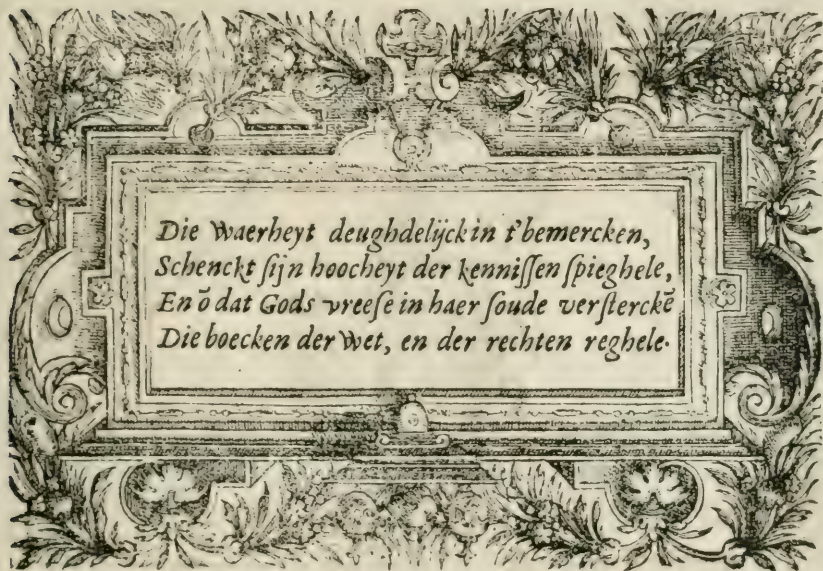 Die Waerheyt deughdelijck in t'bemercken,
Schenckt ſijn hoocheyt der kenniſſen ſpieghele,
En õ dat Gods vreeſe in haer ſoude verſterckẽ
Die boecken der Wet, en der rechten reghele.